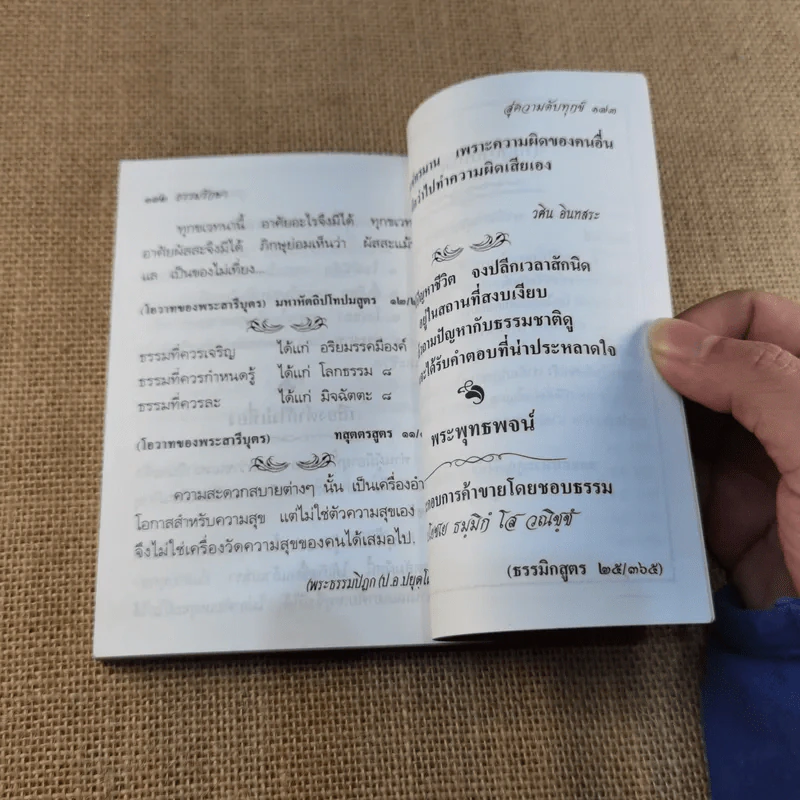 ธรรมรักษา
ทุกขเวทนานี้ อาศัยอะไรจึงมีได้ ทุกขเวท
อาศัยผัสสะจึงมีได้ ภิกษุย่อมเห็นว่า ผัสสะแม้
แล เป็นของไม่เที่ยง...
(โอวาทของพระสารีบุตร) มหาหัตถิปโทปมสูตร ๑๒/
ธรรมที่ควรเจริญ ได้แก่ อริยมรรคมีองค์
ธรรมที่ควรกำหนดรู้ ได้แก่ โลกธรรม ๘
ธรรมที่ควรละ ได้แก่ มิจฉัตตะ ๘
(โอวาทของพระสารีบุตร) ทสุตตรสูตร ๑๑/
ความสะดวกสบายต่างๆ นั้น เป็นเครื่องอำ
โอกาสสำหรับความสุข แต่ไม่ใช่ตัวความสุขเอง
จึงไม่ใช่เครื่องวัดความสุขของคนได้เสมอไป.
(พระธรรมปิฎก (ป.อ.ปยุตฺโ
สู่ความดับทุกข์ ๑๗๓
ทรมาน เพราะความผิดของคนอื่น
ว่าไปทำความผิดเสียเอง
วศิน อินทสระ
ปัญหาชีวิต จงปลีกเวลาสักนิด
อยู่ในสถานที่สงบเงียบ
ถามปัญหากับธรรมชาติดู
ะได้รับคำตอบที่น่าประหลาดใจ
พระพุทธพจน์
กอบการค้าขายโดยชอบธรรม
ธมฺมิกํ โส วณิชฺชํ
(ธรรมิกสูตร ๒๕/๓๖๕)